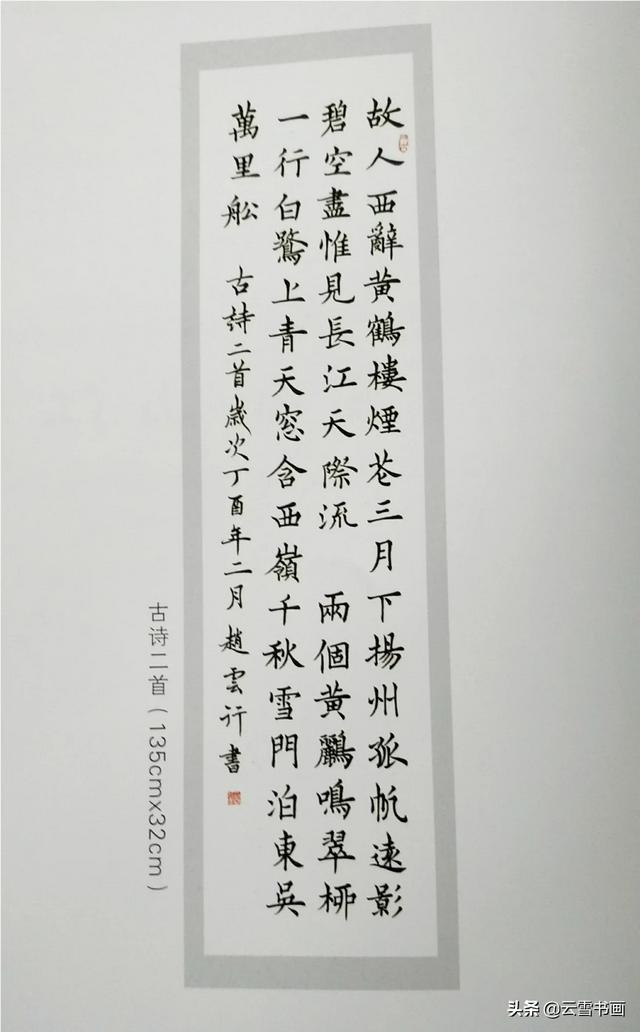 故人西辭黄鶴樓煙花三月下揚州孤帆遠影
碧空盡惟見長江天際流 兩個黄鸝鳴翠柳
一行白鷺上青天窓含西嶺千秋雪門泊東吳
萬里船 古詩二首歲次丁酉年二月趙雲行書
古诗二首（135cmx32cm）
头条 @云雪书画